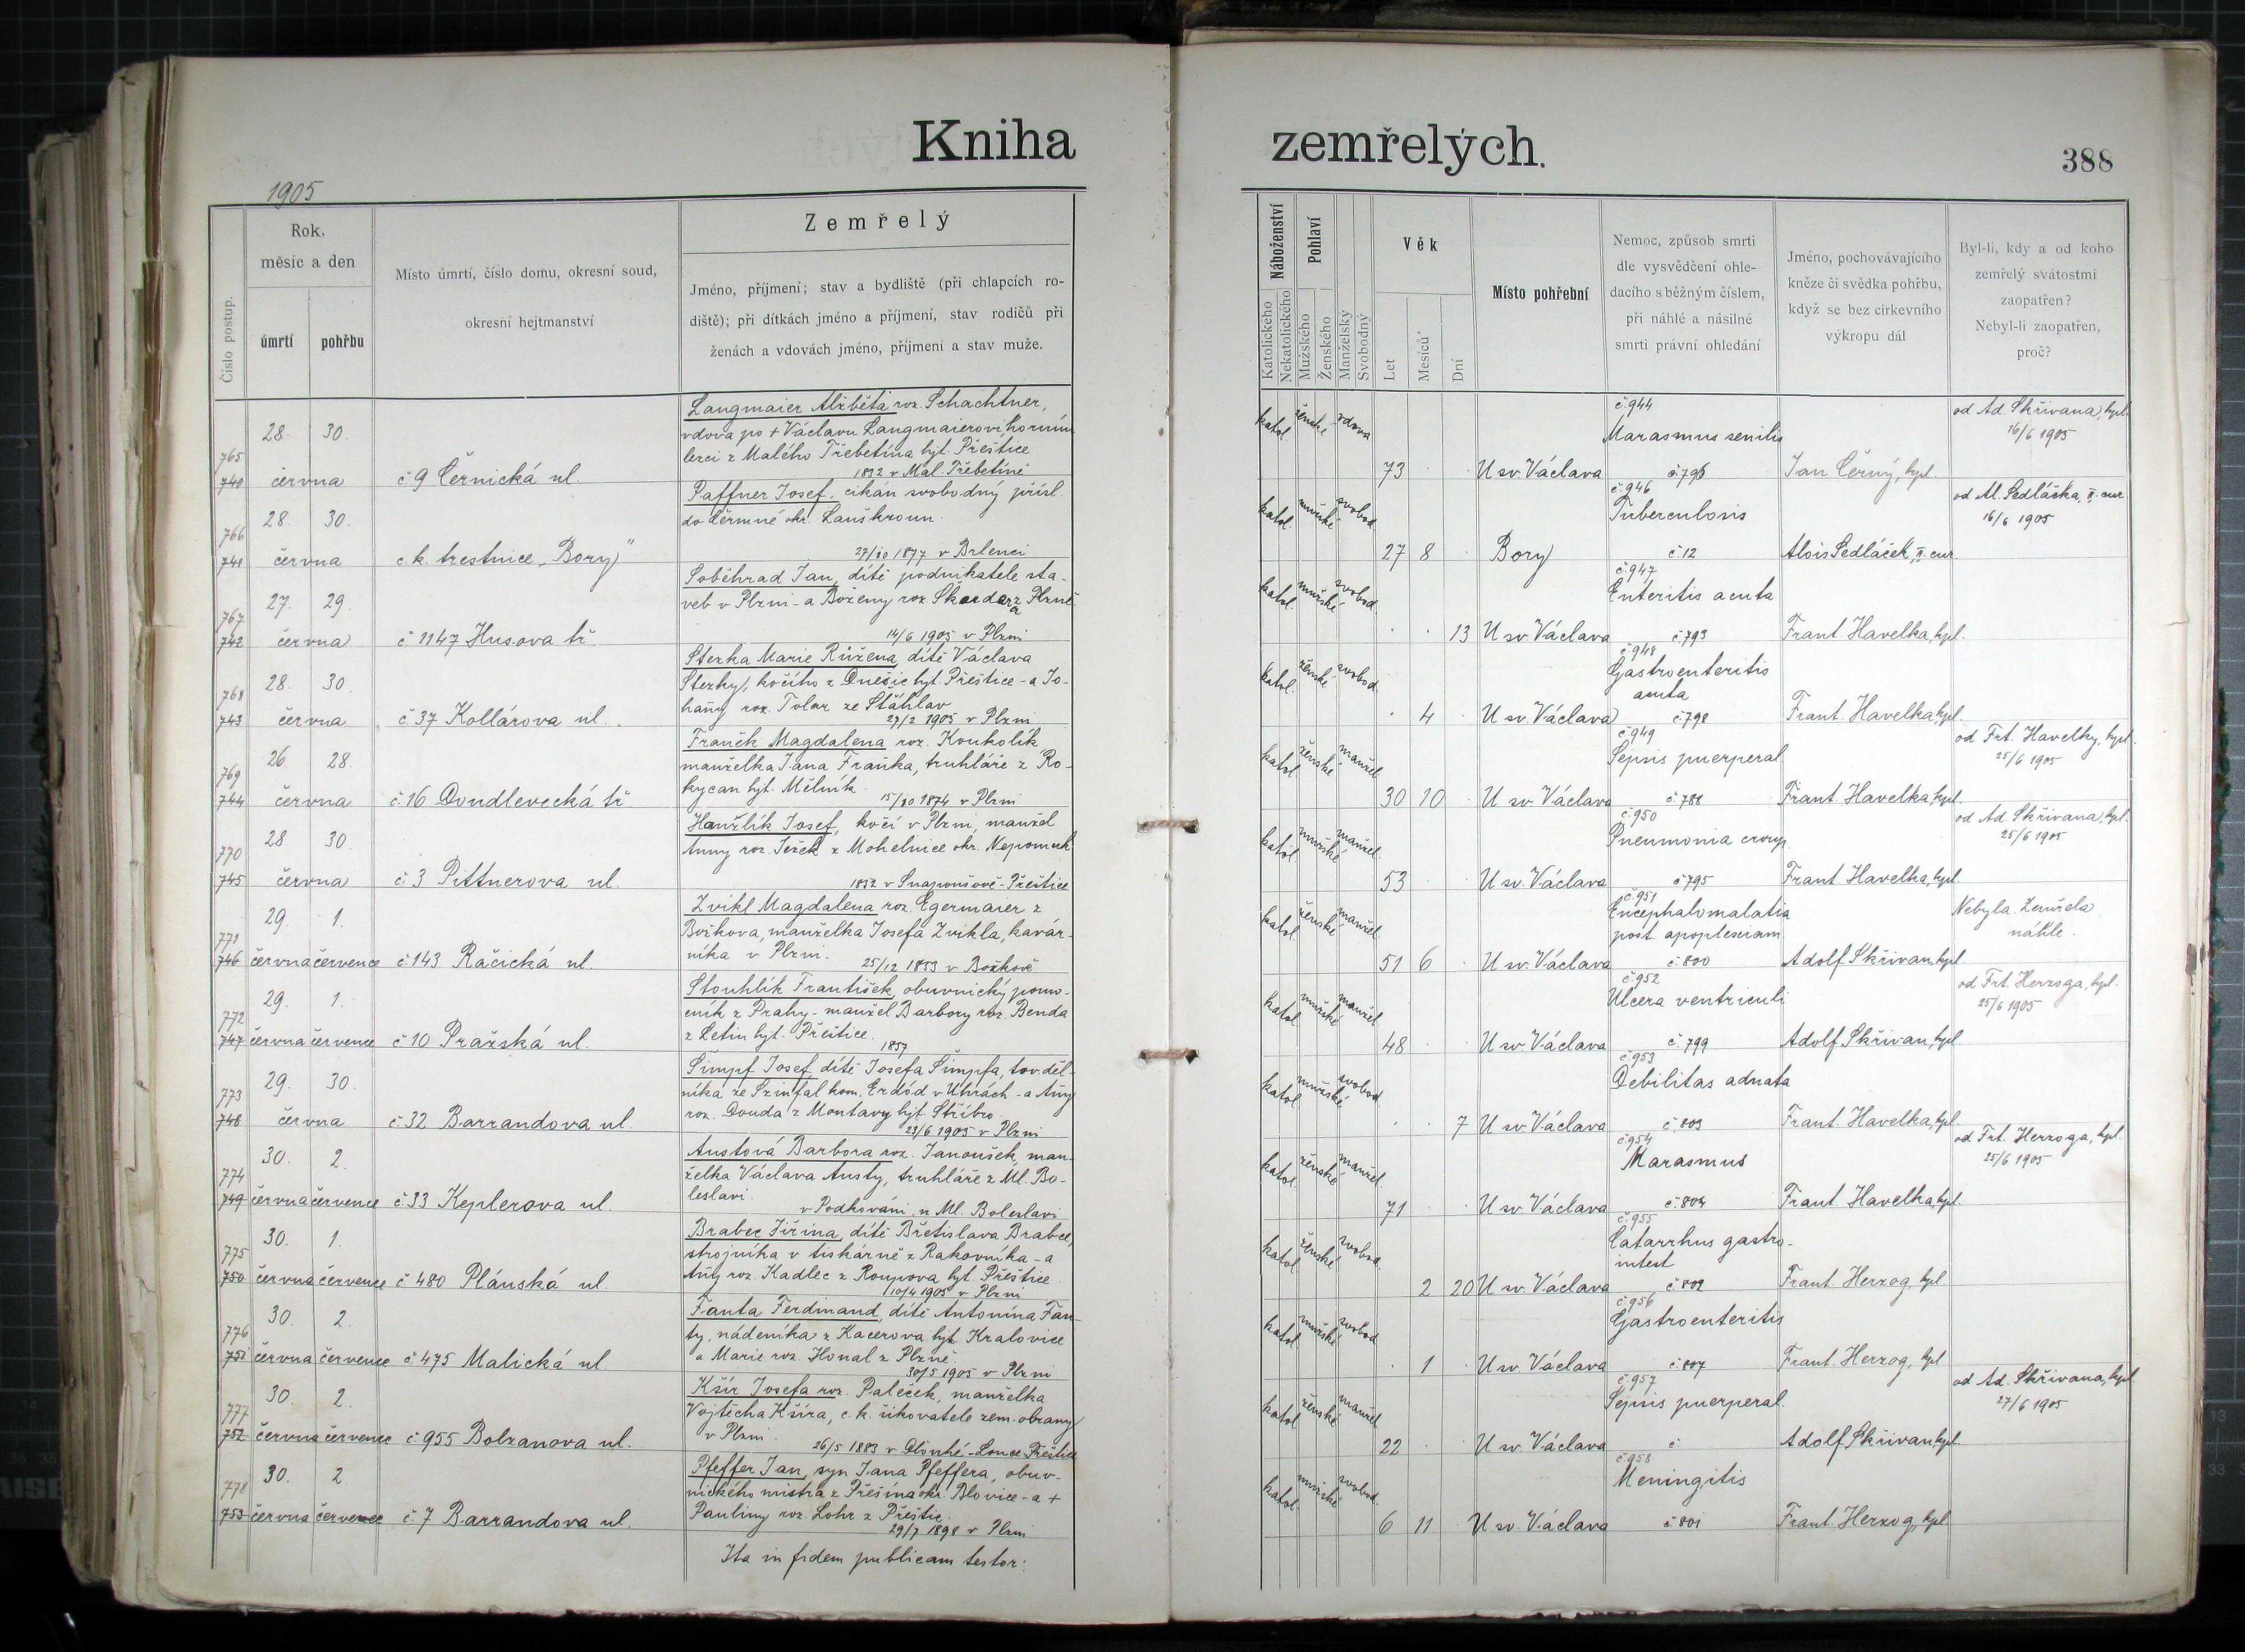 Kniha
zemřelých.
388
1905
Číslo postup.
Rok,
měsíc a den
úmrtí
pohřbu
Místo úmrtí, číslo domu, okresní soud,
okresní hejtmanství
Zemřelý
Jméno, příjmení; stav a bydliště (při chlapcích ro-
diště); při dítkách jméno a příjmení, stav rodičů při
ženách a vdovách jméno, příjmení a stav muže.
Náboženství
Katolického
Nekatolického
Pohlaví
Mužského
Ženského
Manželský
Svobodný
Věk
Let
Mesíců
Dní
Místo pohřební
Nemoc, způsob smrti
dle vysvědčení ohle-
dacího s běžným číslem,
při náhlé a násilné
smrti právní ohledání
Jméno, pochovávajícího
kněze či svědka pohřbu,
když se bez cirkevního
výkropu dál
Byl-li, kdy a od koho
zemřelý svátostmi
zaopatřen?
Nebyl-li zaopatřen,
proč?
765
740
28. 30.
června
č 9 Černická ul.
Langmaier Alžběta roz. Schachtner,
vdova po + Václavu Langmaierovi
z Malého Třebetína hjt. Přeštice
1832 v Mal. Třebetíně
katol. ženské vdova
73
U sv. Václava
č.944
Marasmus senilis
č.796
Jan Černý, kpl.
od Ad. Skřivana, kpl.
16/6 1905
766
741
28. 30.
června
c. k. trestnice „Bory"
Paffner Josef, cikán svobodný přísl.
do Čermné okr. Lanškroun.
27/10 1877 v Brlenci
katol. mužské svobod.
27 8
Bory
č.946
Tuberculosis
č 12
Alois Sedláček, II. cur.
od Al. Sedláčka, II. cur.
16/6 1905
767
742
27. 29.
června
č 1147 Husova tř.
Soběhrad Jan, dítě podnikatele sta-
veb v Plzni - a Boženy roz. Škarda z Plzně
14/6 1905 v Plzni
katol. mužské svobod.
13
U sv. Václava
č.947
Enteritis acuta
č.793
Frant Havelka, kpl.
768
743
28. 30.
června
č 37 Kollárova ul.
Sterka Marie Růžena, dítě Václava
Sterky, kočího z Dnešic hjt. Přeštice - a Jo-
hany roz. Tolar ze Stáhlav
27/2 1905 v Plzni
katol. ženské svobod.
4
U sv. Václava
č.948
Gastroenteritis
acuta
č.798
Frant. Havelka, kpl.
769
744
26. 28.
června
č.16 Doudlevecká tř.
Franěk Magdalena roz. Koukolík,
manželka Jana Fraňka, truhláře z Ro-
kycan hjt. Mělník.
15/10 1874 v Plzni
katol. ženské manžel.
30 10
U sv. Václava
č.949
Sepsis puerperal.
č.788
Frant Havelka, kpl.
od Frt. Havelky, kpl.
25/6 1905
770
745
28. 30.
června
č. 3 Pittnerova ul.
Hanžlík Josef, kočí v Plzni, manžel
Anny roz. Ježek z Mohelnice okr. Nepomuk
v Snapoušově-Přeštice
katol. mužské manžel.
53
U sv. Václava
č.950
Pneumonia croup.
č 795
Frant Havelka, kpl.
od Ad. Skřivana, kpl.
25/6 1905
771
746
29. 1.
června července
č.143 Račická ul.
Zvikl Magdalena roz. Egermaier z
Božkova, manželka Josefa Zvikla, kavár-
níka v Plzni.
25/12 1853 v Božkově
katol. ženské manžel.
51 6
U sv. Václava
č.951
Encephalomalatia
post apoplexiam
č.800
Adolf Skřivan, kpl
Nebyla. Zemřela
náhle.
772
747
29. 1.
června července
č 10 Pražská ul.
Stouhlík František, obuvnický pomo-
cník z Prahy - manžel Barbory roz. Benda
z Letin hjt. Přeštice.
1857
katol. mužské manžel
48
U sv. Václava
č.952
Ulcera ventriculi
č.799
Adolf Skřivan, kpl
od Frt. Herzoga, kpl.
25/6 1905
773
748
29. 30.
června
č 32 Barrandova ul.
Šimpf Josef, dítě Josefa Šimpfa, tov. děl-
níka ze kom. Erdöd v Uhrách - a Any
roz. Douda z Montavy hjt. Stříbro.
23/6 1905 v Plzni
katol. mužské svobod.
7
U sv. Václava
č.953
Debilitas adnata
č.803
Frant. Havelka, kpl.
774
749
30. 2.
června července
č.33 Keplerova ul.
Austová Barbora roz. Janoušek, man-
želka Václava Austy, truhláře z Ml. Bo-
leslavi.
v Podkováni, u Ml. Boleslavi
katol. ženské manžel.
71
U sv. Václava
č.954
Marasmus
č.804
Frant. Havelka, kpl.
od Frt. Herzoga, kpl.
25/6 1905
775
750
30. 1.
června července
č 480 Plánská ul.
Brabec Jiřina, dítě Břetislava Brabce,
strojníka v tiskárně z Rakovníka - a
Any roz. Kadlec z Roupova hjt. Přeštice
10/4 1905 v Plzni
katol. ženské svobod.
2 20
U sv. Václava
č.955
Catarrhus gastro-
intest
č.802
Frant Herzog, kpl
776
751
30. 2.
června července
č 475 Malická ul.
Fanta Ferdinand, dítě Antonína Fan-
ty, nádeníka z Kacerova hjt. Kralovice
a Marie roz. Honal z Plzně.
30/5 1905 v Plzni
katol. mužské svobod.
1
U sv. Václava
č.956
Gastroenteritis
č.807
Frant. Herzog, kpl
777
752
30. 2.
června červenec
č 955 Bolzanova ul.
Kšír Josefa roz. Paleček, manželka
Vojtěcha Kšíra, c. k. šikovatele zem. obrany
v Plzni.
26/5 1883 v Dlouhé-Louce Přeštice
katol. ženské manžel
22
U sv. Václava
č.957
Sepsis puerperal.
č
Adolf Skřivan, kpl.
od Ad. Skřivana, kpl
27/6 1905
778
753
30. 2
června červenec
č. 7 Barrandova ul.
Pfeffer Jan, syn Jana Pfeffera, obuv-
nického mistra z Přešína okr. Blovice - a +
Pauliny roz. Lohr z Přeštic.
29/7 1898 v Plzni
katol. mužské svobod.
6 11
U sv. Václava
č.958
Meningitis
č.801
Frant. Herzog, kpl.
Ita in fidem publicam testor: